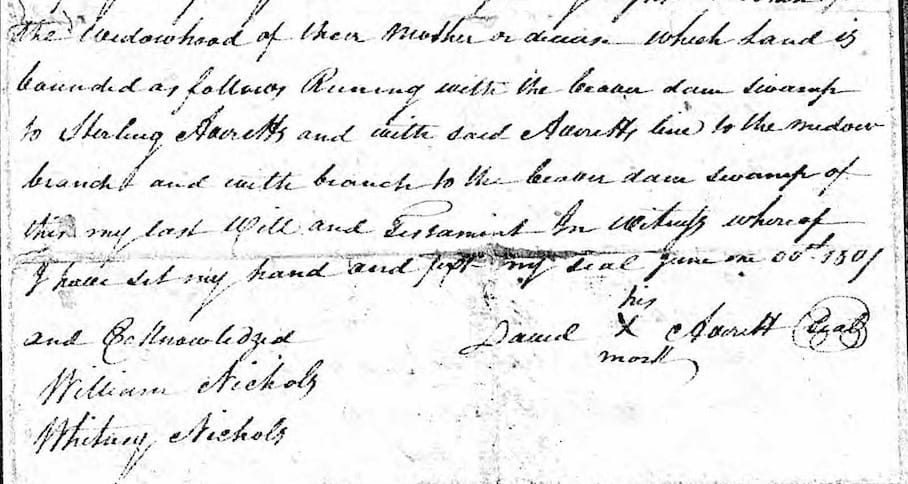 the Widowhood of their Mother or decease which Land is
bounded as follows Runing with the beaver dam swamp
to Sterling Averetts and with said Averetts line to the medow
branch and with branch to the beaver dam swamp of
this my last Will and Testament In Witness whereof
I have set my hand and my seal June 1801
his
and Acknowledged David X Averett Seal
mark
William Nichols
Whitney Nichols